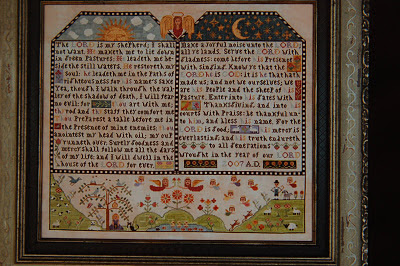 The LORD is my shepherd; I shall
not want. He maketh me to lie down
in green Pastures: He leadeth me be-
side the still waters. He restoreth my
Soul: he leadeth me in the Paths of
righteousness for his name's sake.
Yea, though I walk through the val-
ley of the shadow of death, I will fear
no evil: for thou art with me;
thy rod and thy staff they comfort me.
Thou Preparest a table before me in
the Presence of mine enemies; thou
anointest my head with oil; my cup
runneth over. Surely goodness and
mercy shall follow me all the days
of my life: and I will dwell in the
house of the LORD for ever.
Make a joyful noise unto the LORD,
all ye lands. Serve the LORD with
gladness: come before his Presence
with singing. Know ye that the
LORD he is GOD: it is he that hath
made us, and not we ourselves; we are
his People and the sheep of his
Pasture. Enter into his gates with
Thanksgiving, and into his
courts with Praise: be thankful un-
to him, and bless his name. For the
LORD is good; his mercy is
everlasting; and his truth endureth
to all generations
Wrought in the year of our LORD
2007 A.D.